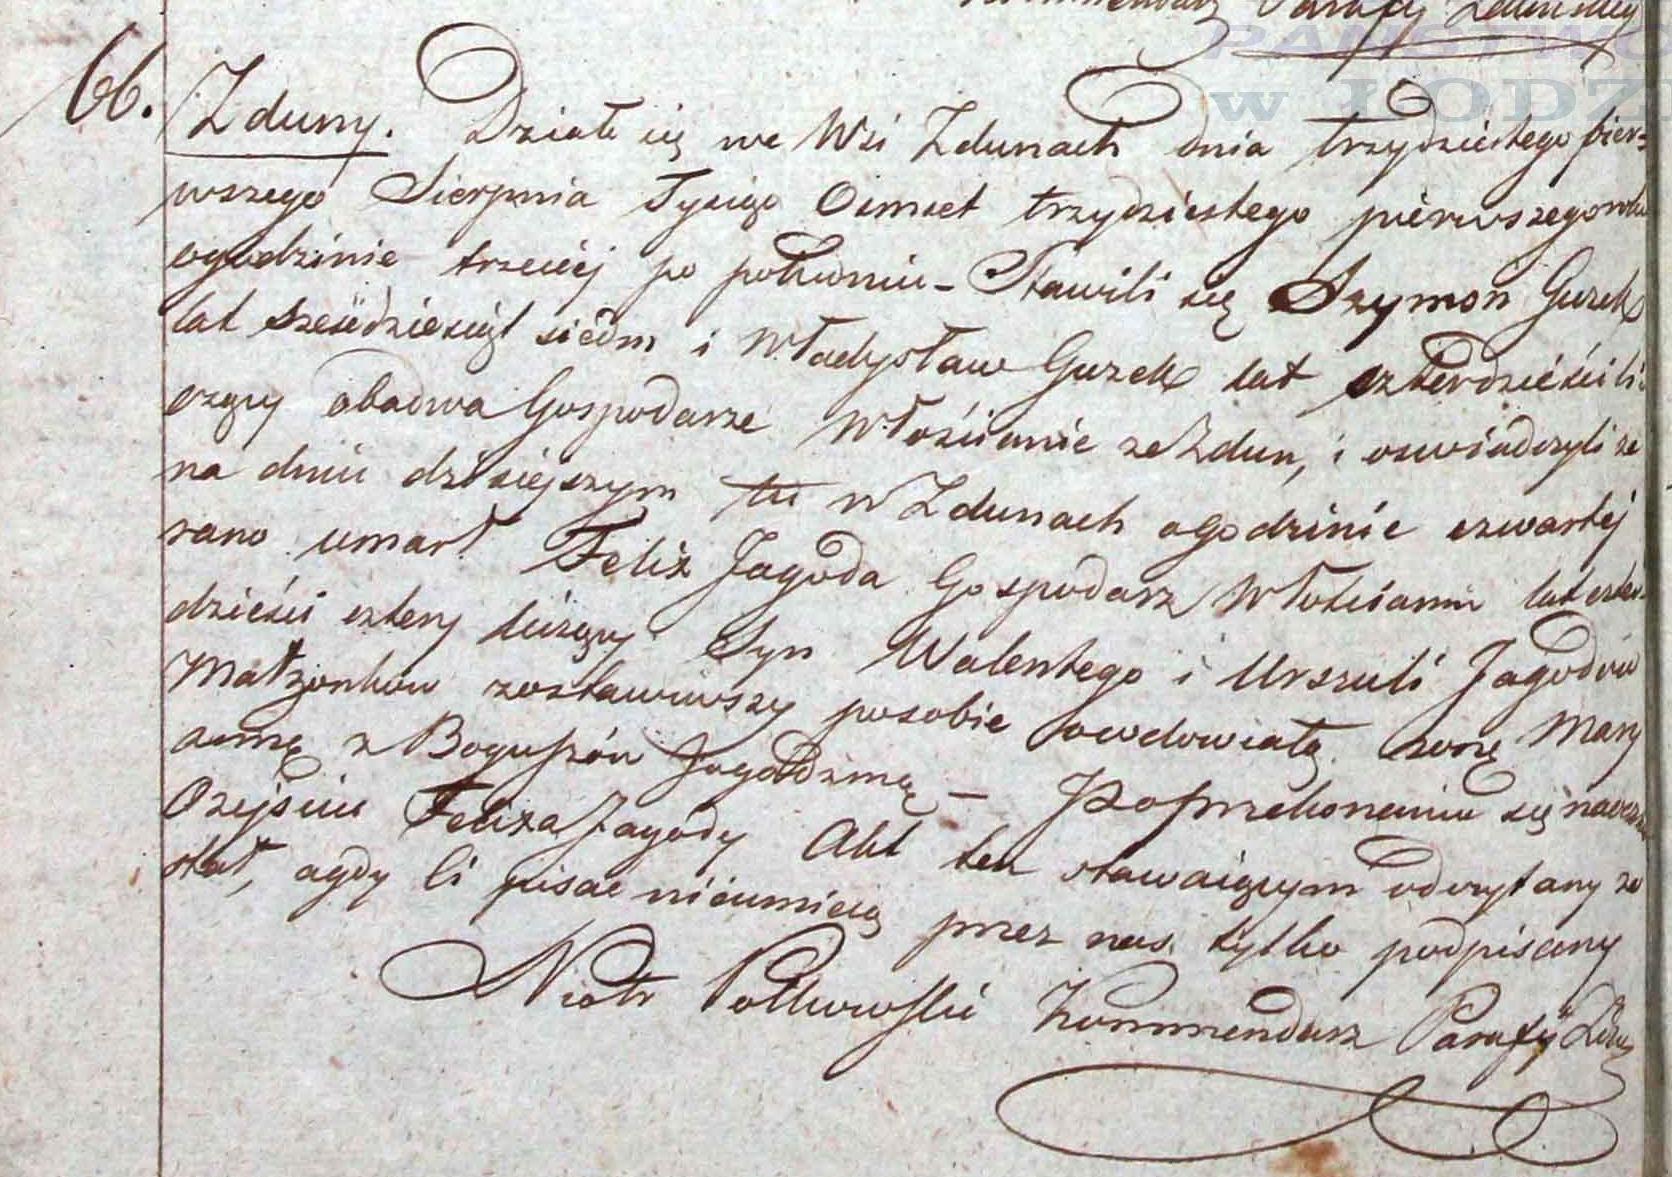 Kommendarz Parafij Zdunskiey
PAŃSTWO
w ŁODZI
66.
Zduny. Działo się we Wsi Zdunach dnia trzydziestego pier-
wszego Sierpnia Tysiąc Osmset trzydziestego pierwszego roku
ogodzinie trzeciej po południu – Stawili się Szymon Guzek
lat sześćdziesiąt siedm i Władysław Guzek lat czterdzieści li-
czący obadwa Gospodarze Włościanie ze Zdun, i oswiadczyli że
na dniu dzisiejszym tu w Zdunach ogodzinie czwartej
rano umarł Felix Jagoda Gospodarz Włościanin lat czter-
dzieści cztery liczący Syn Walentego i Urszuli Jagodów
Małżonków zostawiwszy posobie owdowiałą żonę Mary
annę z Boguszów Jagodzinę – Po przekonaniu się naoczn
Ozejściu Felixa Jagody Akt ten stawaiącym odczytany zo
stał, agdy ci pisać nieumieią przez nas tylko podpisany
Piotr Polkowski Kommendarz Parafij Zduń